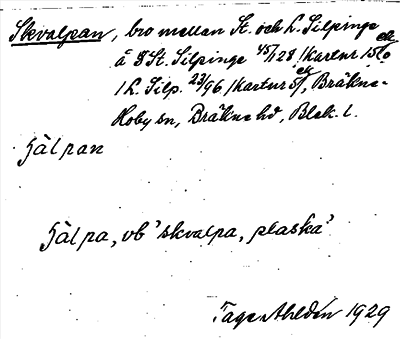 Skvalpan, bro mellan St. och L. Silpinge
å St. Silpinge 45/128 /kartnr
/ L. Silp. 23/96 /kartnr 5/, Bräkne-
Hoby sn, Bräkne hd, Blek. l.
hjàlpan
hjàlpa, vb 'skvalpa, plaska'
Tage Ahldén 1929